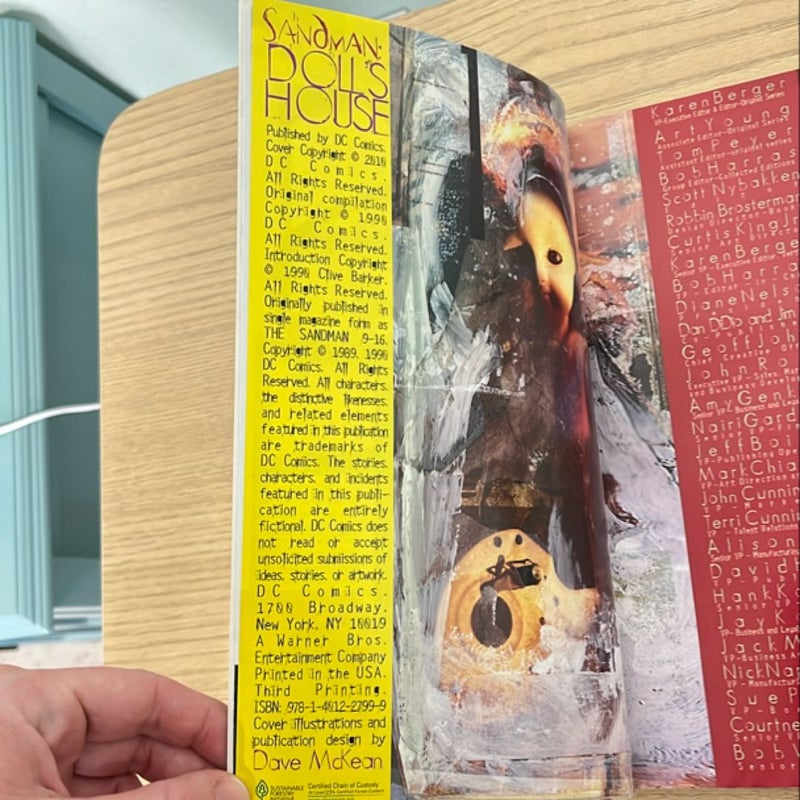 The
SANDMAN:
DOLL'S
HOUSE
Published by DC Comics.
Cover Copyright © 2010
DC Comics.
All Rights Reserved.
Original compilation
Copyright © 1990
DC Comics.
All Rights Reserved.
Introduction Copyright
© 1990 Clive Barker.
All Rights Reserved.
Originally published in
single magazine form as
THE SANDMAN 9-16.
Copyright © 1989, 1990
DC Comics. All Rights
Reserved. All characters,
the distinctive likenesses,
and related elements
featured in this publication
are trademarks of
DC Comics. The stories,
characters, and incidents
featured in this publi-
cation are entirely
fictional. DC Comics does
not read or accept
unsolicited submissions of
ideas, stories, or artwork.
DC Comics,
1700 Broadway,
New York, NY 10019
A Warner Bros.
Entertainment Company
Printed in the USA.
Third Printing.
ISBN: 978-1-4012-2799-9
Cover illustrations and
publication design by
Dave McKean
SUSTAINABLE
FORESTRY
INITIATIVE
Certified Chain of Custody
Karen Berger
VP-Executive Editor & Editor-Original Series
Art Young
Associate Editor-Original Series
Tom Peyer
Assistant Editor-original series
Bob Harras
Group Editor-Collected Editions
Scott Nybakken
Robbin Brosterman
Design Director-
Curtis King Jr.
Senior Art
Karen Berger
Senior VP-Executive Editor
Bob Harra
Diane Nels
Dan DiDio and Jim
Geoff Joh
Chief Creative
John R
Executive VP-Sales,
and Business
Amy Genk
Senior VP-Business and
Nairi Gard
Jeff Boi
VP-Publishing
Mark Chia
VP-Art Direction
John Cunnin
Terri Cunnin
VP-Talent Relations
Alison
Senior VP-Manufacturing
David H
Hank K
Senior
Jay K
VP-Business and Legal
Jack M
VP-Business
Nick Na
VP-Manufacturing
Sue P
Courtne
Senior
Bob